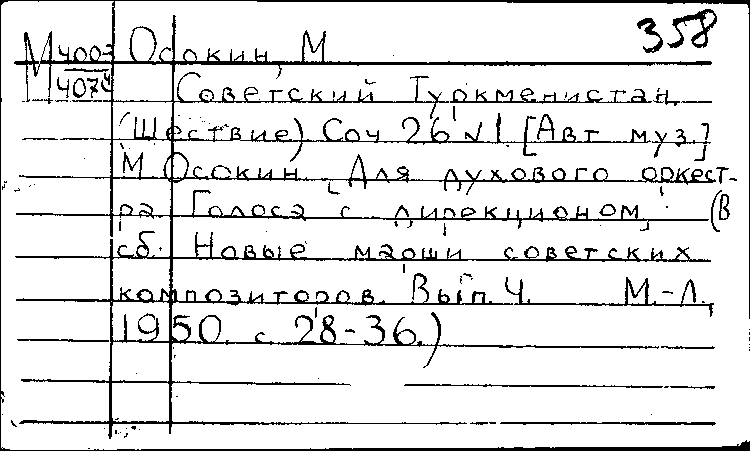 358
Осокин, М
М 4003
4074
Советский Туркменистан.
(Шествие) Соч 26 №1. [Авт муз.]
М Осокин. Для духового оркест-
ра. Голоса с дирекционом, (В
сб. Новые марши советских
композиторов. Вып. 4. М.-Л.,
1950. с. 28-36.)